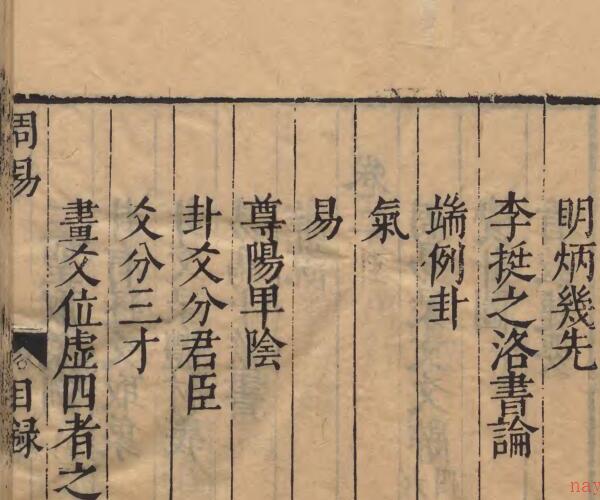 明炳幾先
李挺之洛書論
端例卦
氣
易
尊陽卑陰
卦爻分君臣
爻分三才
畫爻位虛四者之
周易
目録
nay